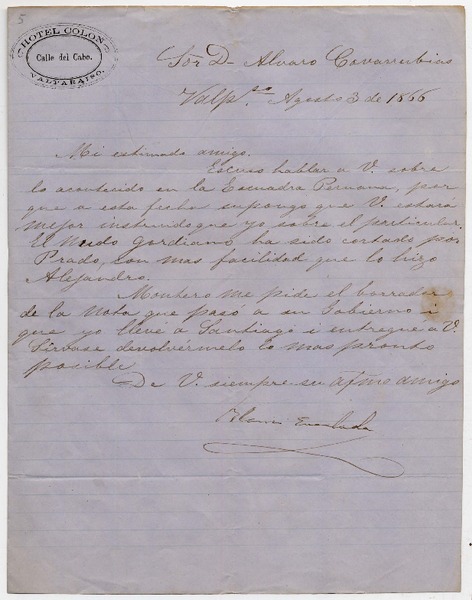 5
HOTEL COLON
Calle del Cabo.
VALPARAISO.
Sor Dn Alvaro Covarrubias
Valpso Agosto 3 de 1866
Mi estimado amigo.
Escuso hablar a V. sobre
lo acontecido en la Escuadra Peruana, por
que a esta fecha supongo que V. estará
mejor instruido que yo sobre el particular.
El nudo gordiano, ha sido cortado por
Prado, con mas facilidad que lo hizo
Alejandro.
Montero me pide el borrador
de la nota que pasó a su Gobierno i
que yo llevé a Santiago i entregué a V.
Sirvase devolvérmelo lo mas pronto
posible
De V. siempre su afmo amigo